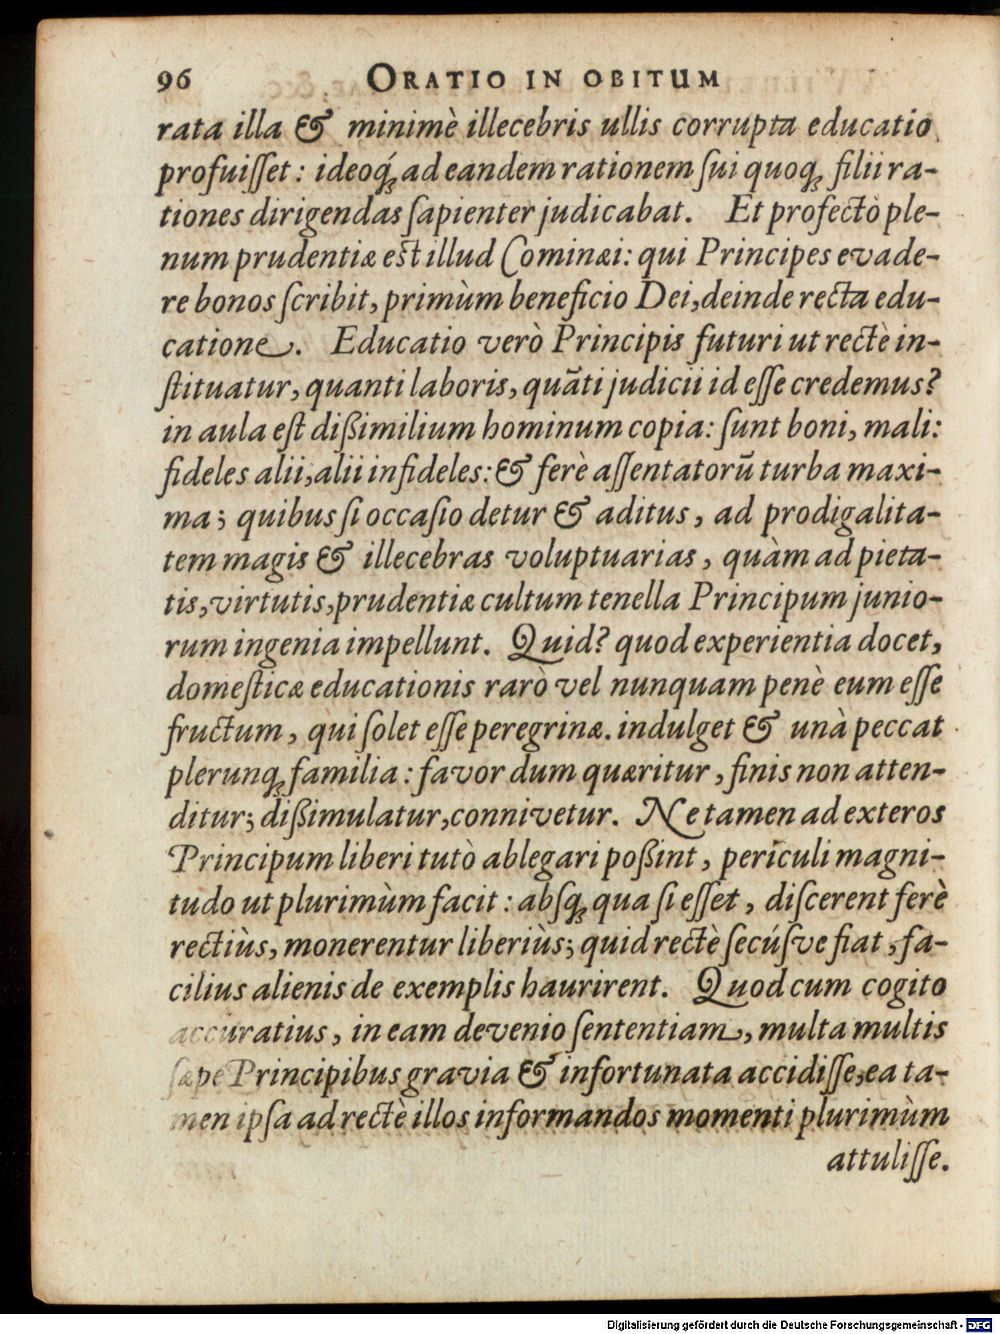 96 ORATIO IN OBITUM
rata illa & minimè illecebris ullis corrupta educatio
profuiſſet: ideoq́ꝫ ad eandem rationem ſui quoqꝫ filii ra-
tiones dirigendas ſapienter judicabat. Et profectò ple-
num prudentiæ eſt illud Cominæi: qui Principes evade-
re bonos ſcribit, primùm beneficio Dei, deinde recta edu-
catione. Educatio verò Principis futuri ut rectè in-
ſtituatur, quanti laboris, quãti judicii id eſſe credemus?
in aula eſt dißimilium hominum copia: ſunt boni, mali:
fideles alii, alii infideles: & ferè aſſentatorũ turba maxi-
ma; quibus ſi occaſio detur & aditus, ad prodigalita-
tem magis & illecebras voluptuarias, quàm ad pieta-
tis, virtutis, prudentiæ cultum tenella Principum junio-
rum ingenia impellunt. Quid? quod experientia docet,
domeſticæ educationis rarò vel nunquam penè eum eſſe
fructum, qui ſolet eſſe peregrinæ. indulget & unà peccat
plerunqꝫ familia: favor dum quæritur, finis non atten-
ditur; dißimulatur, connivetur. Ne tamen ad exteros
Principum liberi tutò ablegari poßint, periculi magni-
tudo ut plurimùm facit: abſqꝫ qua ſi eſſet, diſcerent ferè
rectiùs, monerentur liberiùs; quid rectè ſecúſve fiat, fa-
cilius alienis de exemplis haurirent. Quod cum cogito
accuratius, in eam devenio ſententiam, multa multis
ſæpe Principibus gravia & infortunata accidiſſe, ea ta-
men ipſa ad rectè illos informandos momenti plurimùm
attuliſſe.
Digitalisierung gefördert durch die Deutsche Forschungsgemeinschaft - DFG